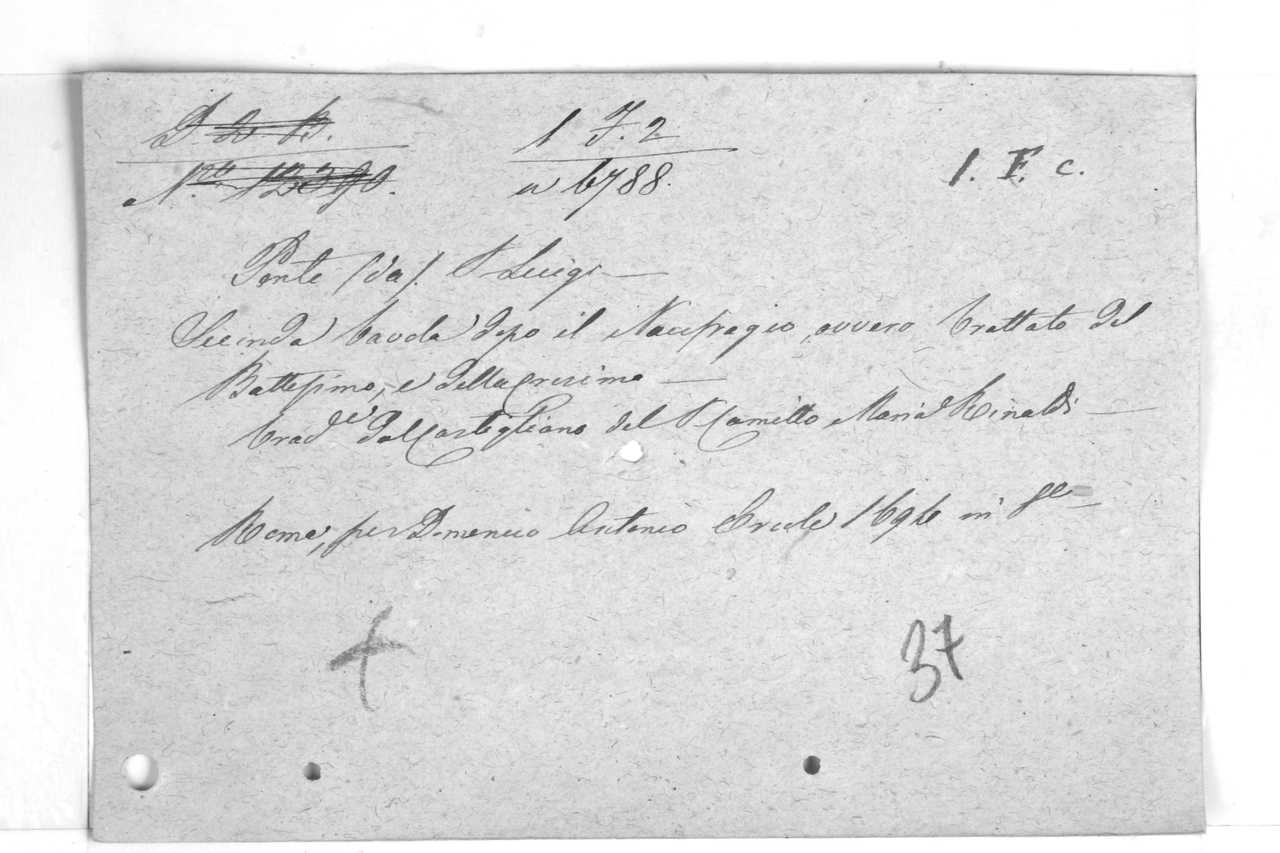 1 F. 2
I. F. c.
N.ro 12390.
a 6788.
Ponte (da). P Luigi
Secunda tavola dopo il Naufragio, ovvero trattato del
Battesimo, e della Cresima
trad.e dal Castigliano del P Camillo Maria Rinaldi
Roma, per Domenico Antonio Ercole 1696 in
37